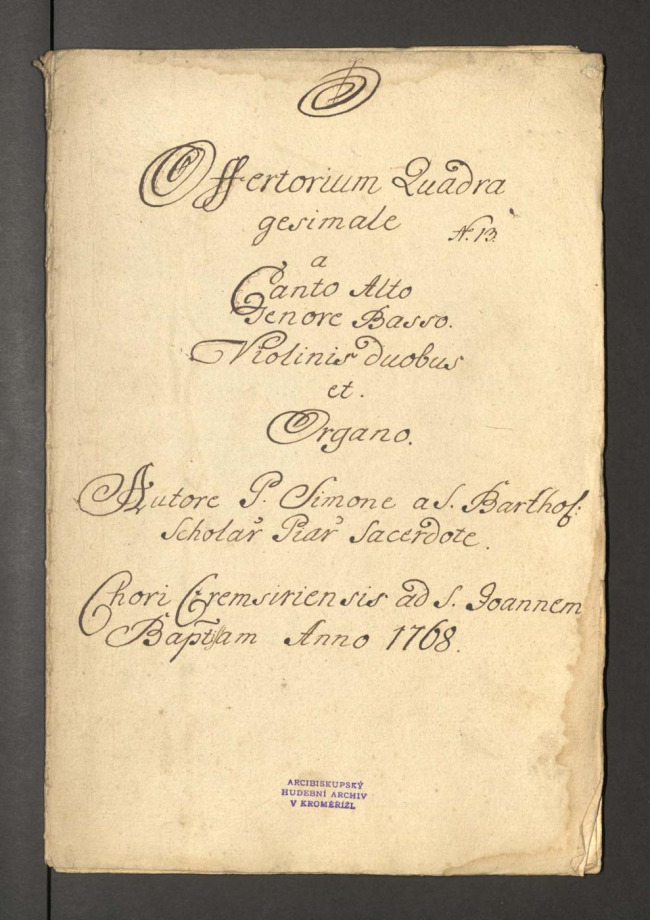 Offertorium Quadra
gesimale
N. 13.
a
Canto Alto
Tenore Basso.
Violinis duobus
et.
Organo.
Autore P. Simone a S. Barthol:
Scholar̃ Piar̃ Sacerdote.
Chori Cremsiriensis ad S. Joannem
Baptistam Anno 1768.
ARCIBISKUPSKÝ
HUDEBNÍ ARCHIV
V KROMĚŘÍŽI.